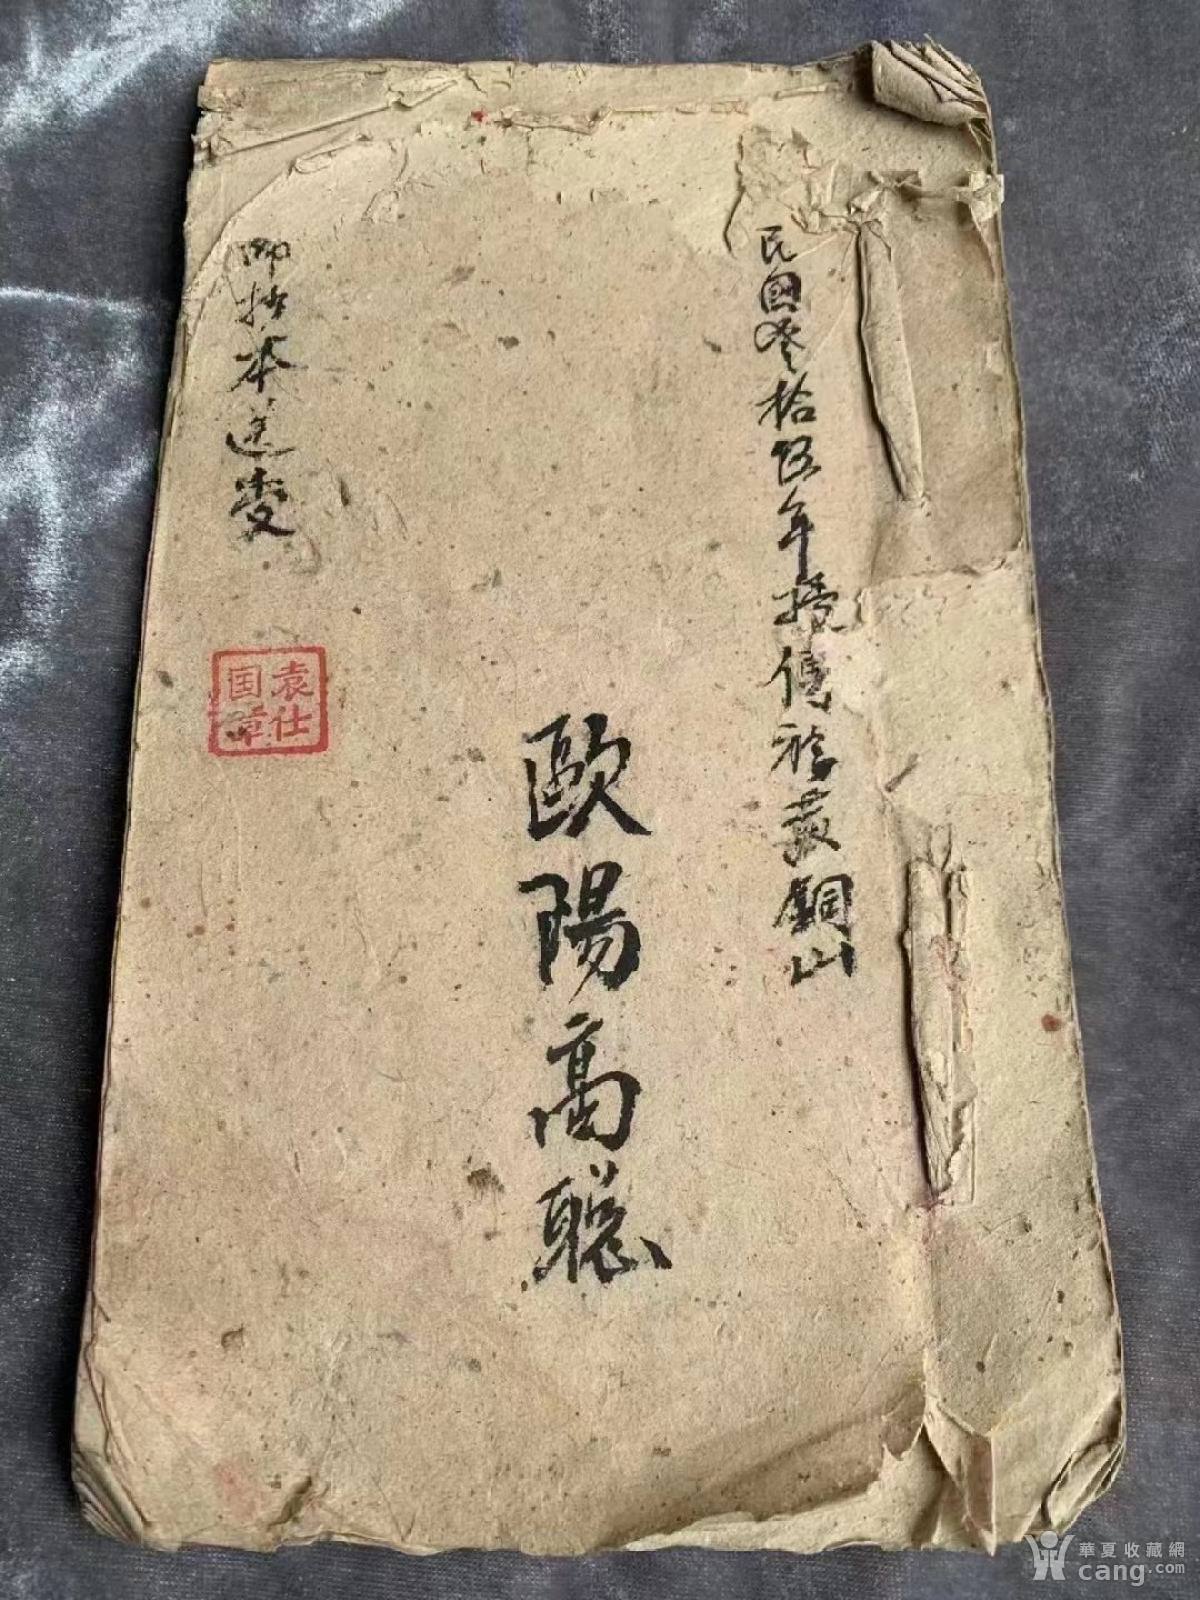 民國叁拾伍年授傳於蓑銅山
歐陽高聰
师抄本送受
袁仕
国章
華夏收藏網
cang.com